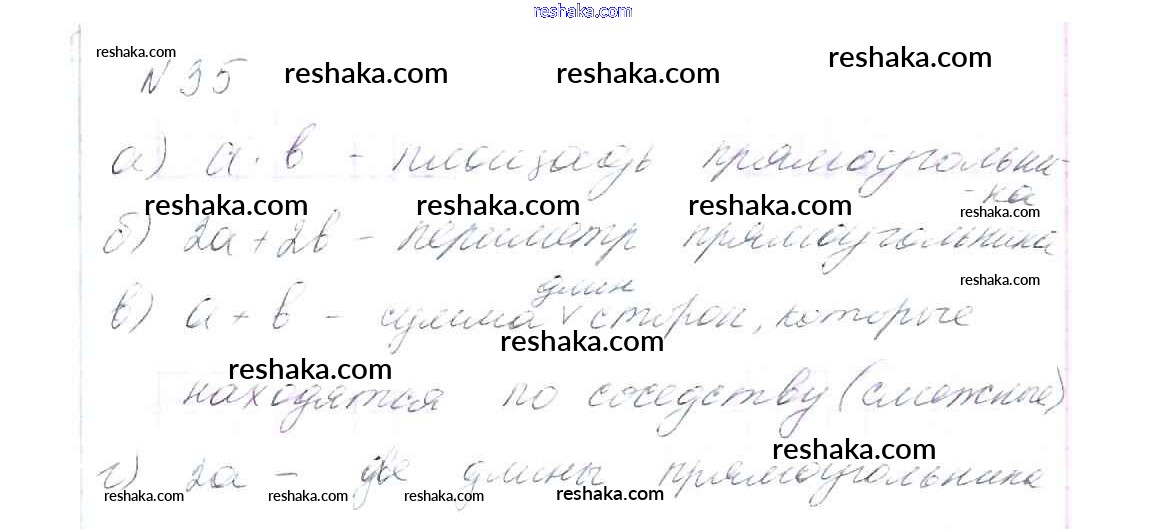 reshaka.com
reshaka.com
N 35 reshaka.com reshaka.com reshaka.com
а) a · b - площадь прямоугольни-
-ка
reshaka.com reshaka.com reshaka.com reshaka.com
б) 2a + 2b - периметр прямоугольника
reshaka.com
длин
в) a + b - сумма v сторон, которые
reshaka.com
reshaka.com
находятся по соседству (смежные)
reshaka.com
г) 2a - две длины прямоугольника
reshaka.com reshaka.com reshaka.com reshaka.com reshaka.com